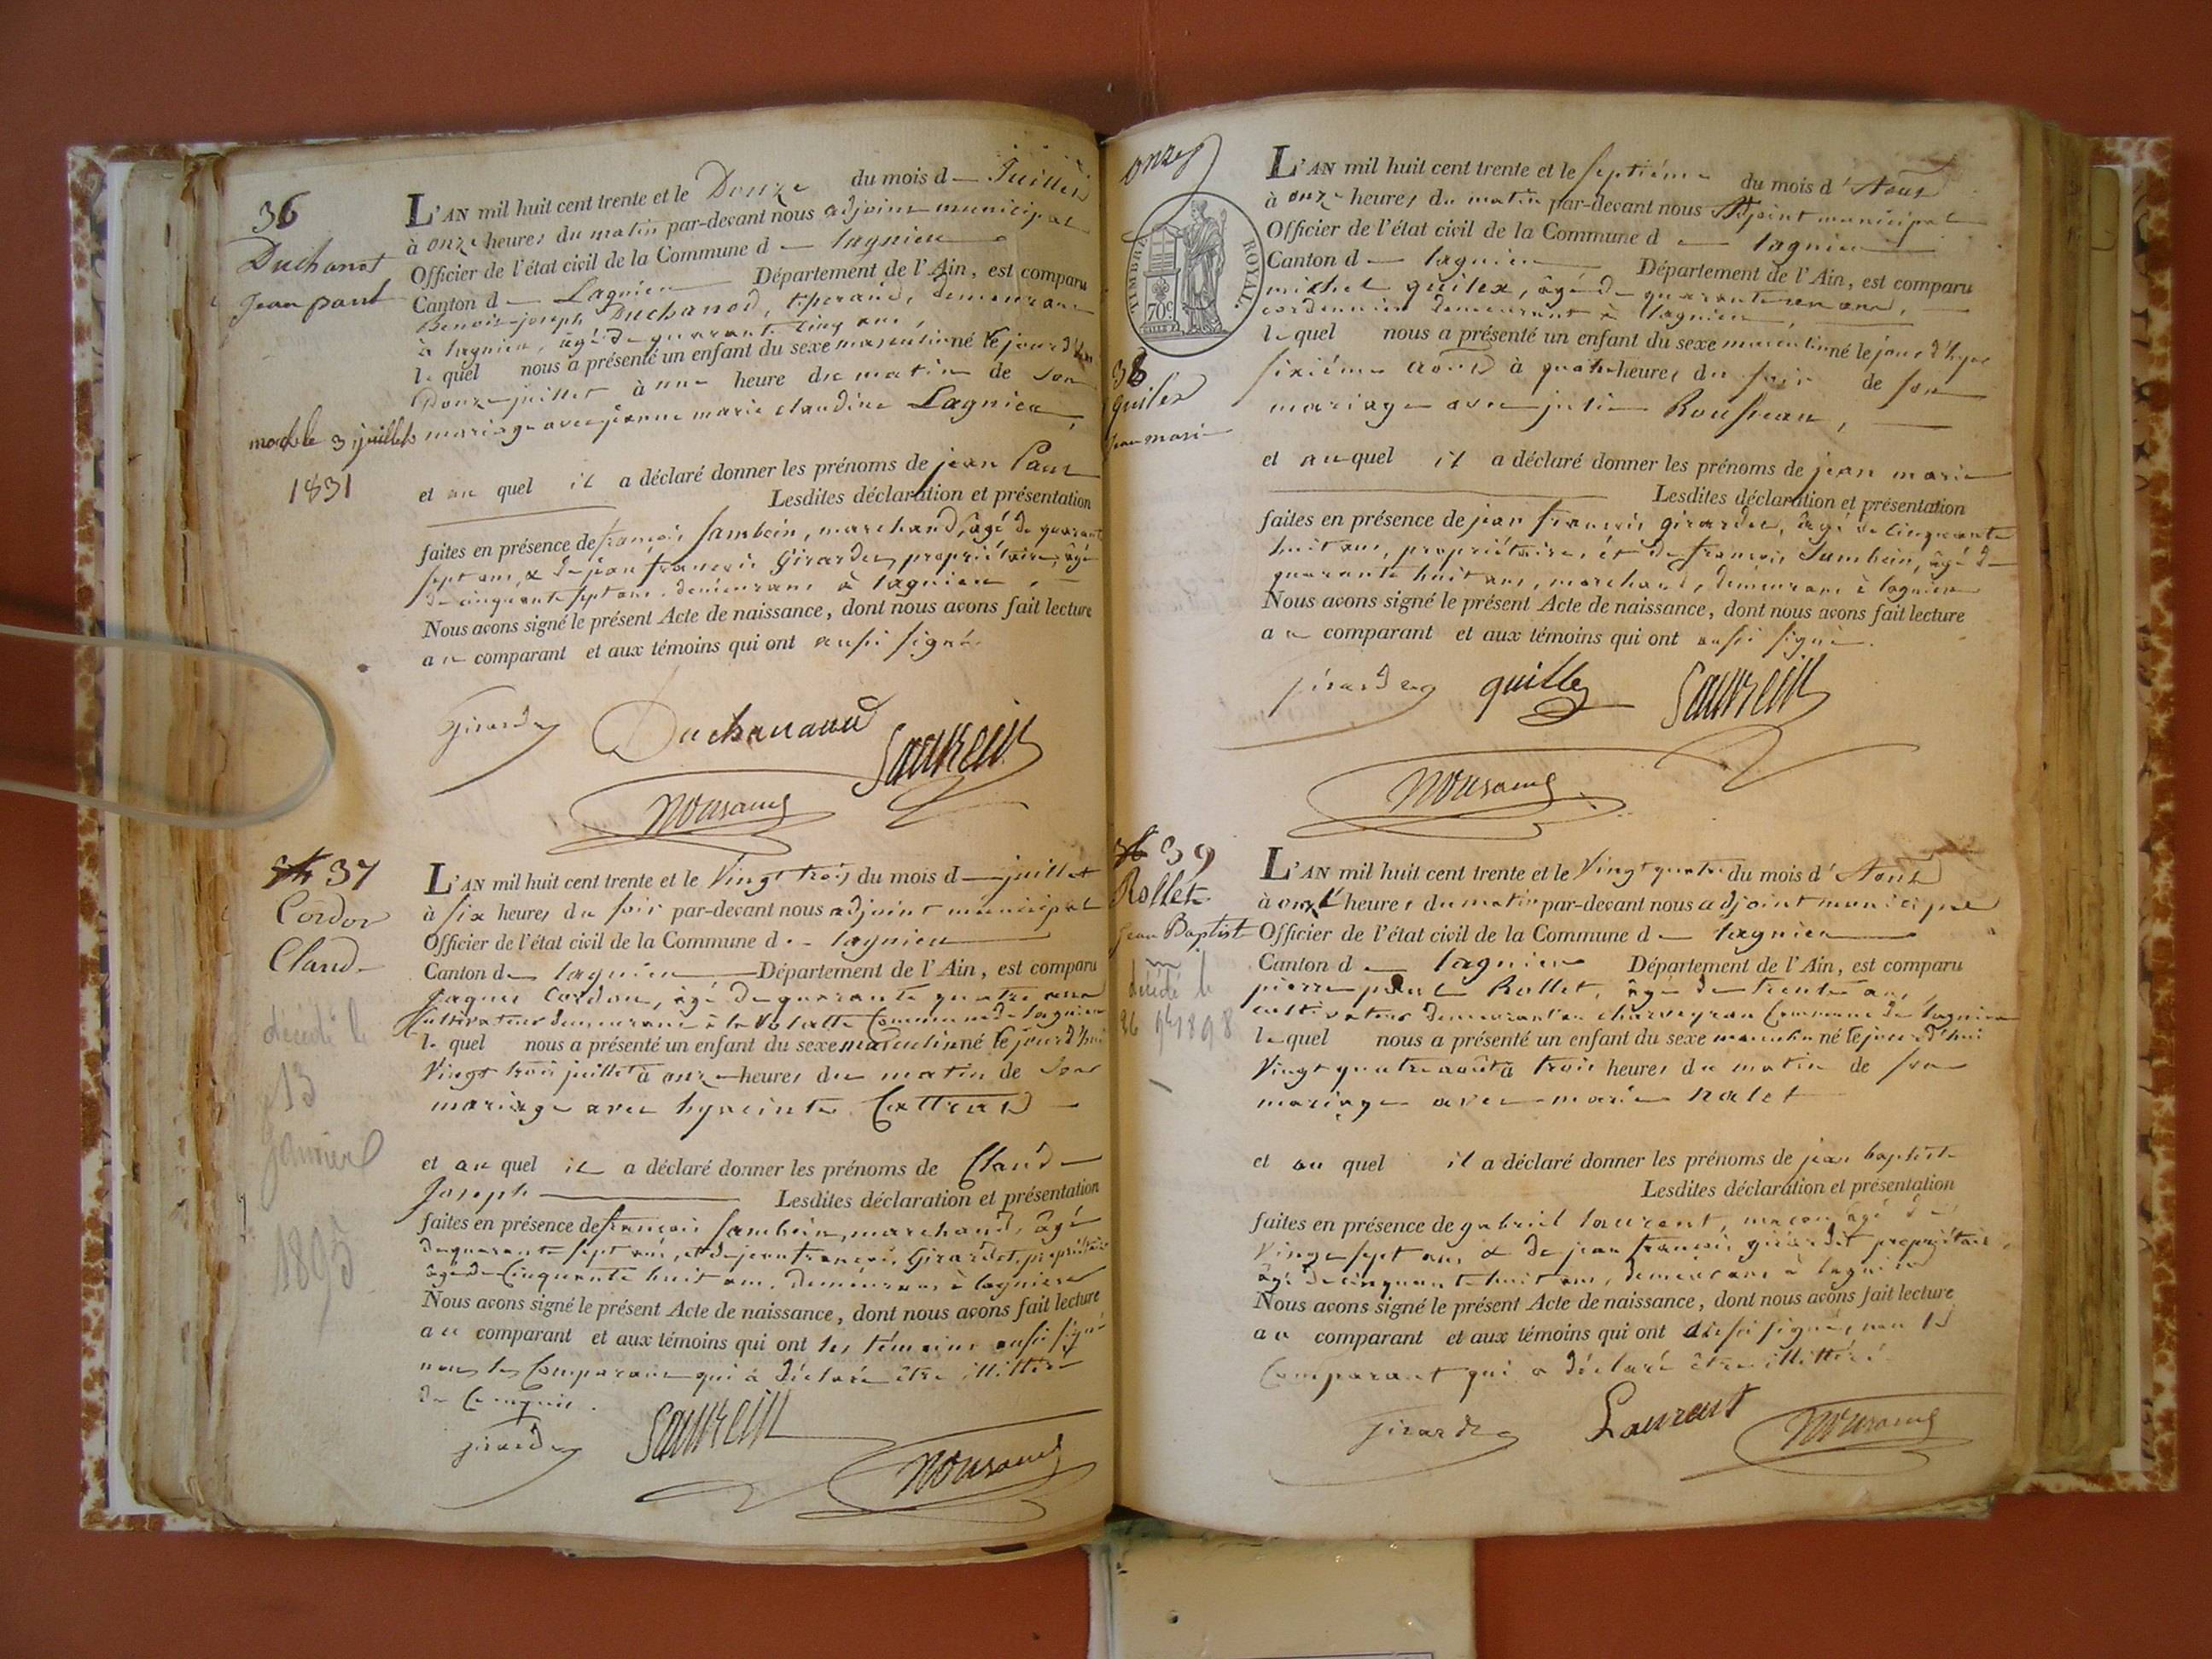 36
Duchanot
Jean paul
mort le 3 juillet
1831
L'AN mil huit cent trente et le Douze du mois d — Juillet
à onze heures du matin par-devant nous adjoint municipal
Officier de l'état civil de la Commune d — lagnieu
Canton d — Lagnieu — Département de l'Ain, est comparu
Benoit joseph Duchanod, demeurant
à lagnieu, âgé de quarante cinq ans,
le quel nous a présenté un enfant du sexe masculin né le jour d'hui
Douze juillet à une heure du matin de son
mariage avec jeanne marie claudine Lagnieu
et au quel il a déclaré donner les prénoms de jean Paul
Lesdites déclaration et présentation
faites en présence de françois Sambein, marchand, âgé de quarante
sept ans, & de jean francois Girardet, propriétaire, âgé
de cinquante sept ans, demeurans à lagnieu
Nous avons signé le présent Acte de naissance, dont nous avons fait lecture
au comparant et aux témoins qui ont aussi signé
Girardet Duchanaud
37
Cordon
Claude
décédé le
13
janvier
1895
L'AN mil huit cent trente et le Vingt trois du mois d — juillet
à six heures du soir par-devant nous adjoint municipal
Officier de l'état civil de la Commune d — lagnieu
Canton d — lagnieu — Département de l'Ain, est comparu
Jaques Cordon, âgé de quarante quatre ans
Cultivateur demeurant à Commune de lagnieu
le quel nous a présenté un enfant du sexe masculin né le jour d'hui
Vingt trois juillet à onze heures du matin de son
mariage avec hyacinte
et au quel il a déclaré donner les prénoms de Claude
Joseph — Lesdites déclaration et présentation
faites en présence de françois Sambein, marchand, âgé
de quarante sept ans, et de jean francois Girardet, propriétaire
âgé de Cinquante huit ans, demeurans à lagnieu
Nous avons signé le présent Acte de naissance, dont nous avons fait lecture
au comparant et aux témoins qui ont les témoins aussi signé
non le Comparant qui a déclaré être illittéré
de ce enquis.
Girardet
onze
TIMBRE ROYAL.
70c
38
quilex
Jean marie
L'AN mil huit cent trente et le septième du mois d'Aout
à onze heures du matin par-devant nous Adjoint municipal
Officier de l'état civil de la Commune d — lagnieu
Canton d — lagnieu — Département de l'Ain, est comparu
michel quilex, âgé de ans,
cordonnier demeurant à lagnieu,
le quel nous a présenté un enfant du sexe masculin né le jour d'hyer
sixième aout à quatre heures du soir de son
mariage avec julie Rousseau,
et au quel il a déclaré donner les prénoms de jean marie
Lesdites déclaration et présentation
faites en présence de jean francois girardet, âgé de cinquante
huit ans, propriétaire, et de francois Sambein, âgé de
quarante huit ans, marchand, demeurans à lagnieu
Nous avons signé le présent Acte de naissance, dont nous avons fait lecture
au comparant et aux témoins qui ont aussi signé.
Girardet quillex
39
Rollet
Jean Baptiste
décédé le
26 9bre 1898
L'AN mil huit cent trente et le Vingt quatre du mois d'Aout
à onze heures du matin par-devant nous adjoint municipal
Officier de l'état civil de la Commune d — lagnieu
Canton d — lagnieu Département de l'Ain, est comparu
pierre paul Rollet, âgé de trente ans,
cultivateur demeurant au charveyron Commune de lagnieu
le quel nous a présenté un enfant du sexe masculin né le jour d'hui
Vingt quatre août à trois heures du matin de son
mariage avec marie
et au quel il a déclaré donner les prénoms de jean baptiste
Lesdites déclaration et présentation
faites en présence de gabriel laurent, maçon âgé de
Vingt sept ans & de jean francois girardet propriétaire
âgé de cinquante huit ans, demeurans à lagnieu
Nous avons signé le présent Acte de naissance, dont nous avons fait lecture
au comparant et aux témoins qui ont aussi signé, non le
Comparant qui a déclaré être illittéré.
Girardet Laurent